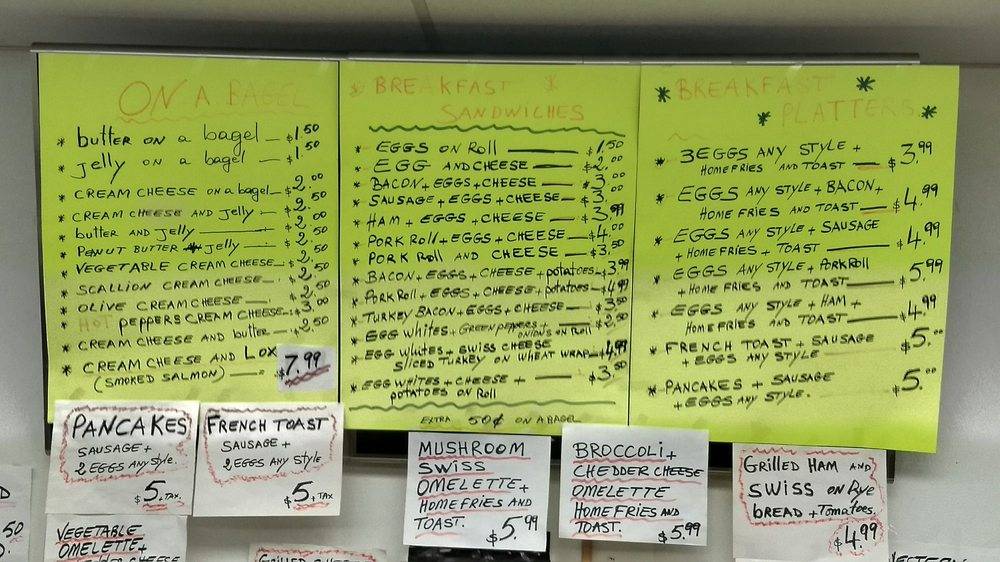 ON A BAGEL
* butter on a bagel — $1.50
* jelly on a bagel — $1.50
* CREAM CHEESE on a bagel — $2.00
* CREAM CHEESE AND Jelly — $2.50
* butter AND jelly — $2.00
* PEANUT BUTTER + Jelly — $2.50
* VEGETABLE CREAM CHEESE — $2.50
* SCALLION CREAM CHEESE — $2.50
* OLIVE CREAM CHEESE — $2.50
* HOT PEPPERS CREAM CHEESE — $3.00
* CREAM CHEESE AND butter — $2.50
* CREAM CHEESE AND LOX
(SMOKED SALMON) — $7.99
* BREAKFAST *
SANDWICHES
* EGGS ON ROLL — $1.50
* EGG AND CHEESE — $2.00
* BACON + EGGS + CHEESE — $3.00
* SAUSAGE + EGGS + CHEESE — $3.00
* HAM + EGGS + CHEESE — $3.99
* PORK ROLL + EGGS + CHEESE — $4.00
* PORK ROLL AND CHEESE — $3.50
* BACON + EGGS + CHEESE + potatoes — $3.99
* PORK ROLL + EGGS + CHEESE + potatoes — $4.99
* TURKEY BACON + EGGS + CHEESE — $3.50
* EGG WHITES + GREEN PEPPERS + — $2.50
ONIONS ON ROLL
* EGG WHITES + SWISS CHEESE
SLICED TURKEY ON WHEAT WRAP — $4.99
* EGG WHITES + CHEESE + — $3.50
POTATOES ON ROLL
EXTRA 50¢ ON A BAGEL
* BREAKFAST *
* PLATTERS *
* 3 EGGS ANY STYLE +
HOME FRIES AND TOAST — $3.99
* EGGS ANY STYLE + BACON +
HOME FRIES AND TOAST — $4.99
* EGGS ANY STYLE + SAUSAGE
+ HOME FRIES + TOAST — $4.99
* EGGS ANY STYLE + PORK ROLL
+ HOME FRIES AND TOAST — $5.99
* EGGS ANY STYLE + HAM +
HOME FRIES AND TOAST — $4.99
* FRENCH TOAST + SAUSAGE
+ EGGS ANY STYLE — $5.00
* PANCAKES + SAUSAGE
+ EGGS ANY STYLE. $5.00
PANCAKES
SAUSAGE +
2 EGGS ANY STYLE.
$5 + TAX.
FRENCH TOAST
SAUSAGE +
2 EGGS ANY STYLE
$5 + TAX
MUSHROOM
SWISS
OMELETTE +
HOME FRIES AND
TOAST. $5.99
BROCCOLI +
CHEDDER CHEESE
OMELETTE
HOME FRIES AND
TOAST. $5.99
GRILLED HAM AND
SWISS ON Rye
bREAD + Tomatoes.
$4.99
VEGETABLE
OMELETTE +
CHEESE
.50